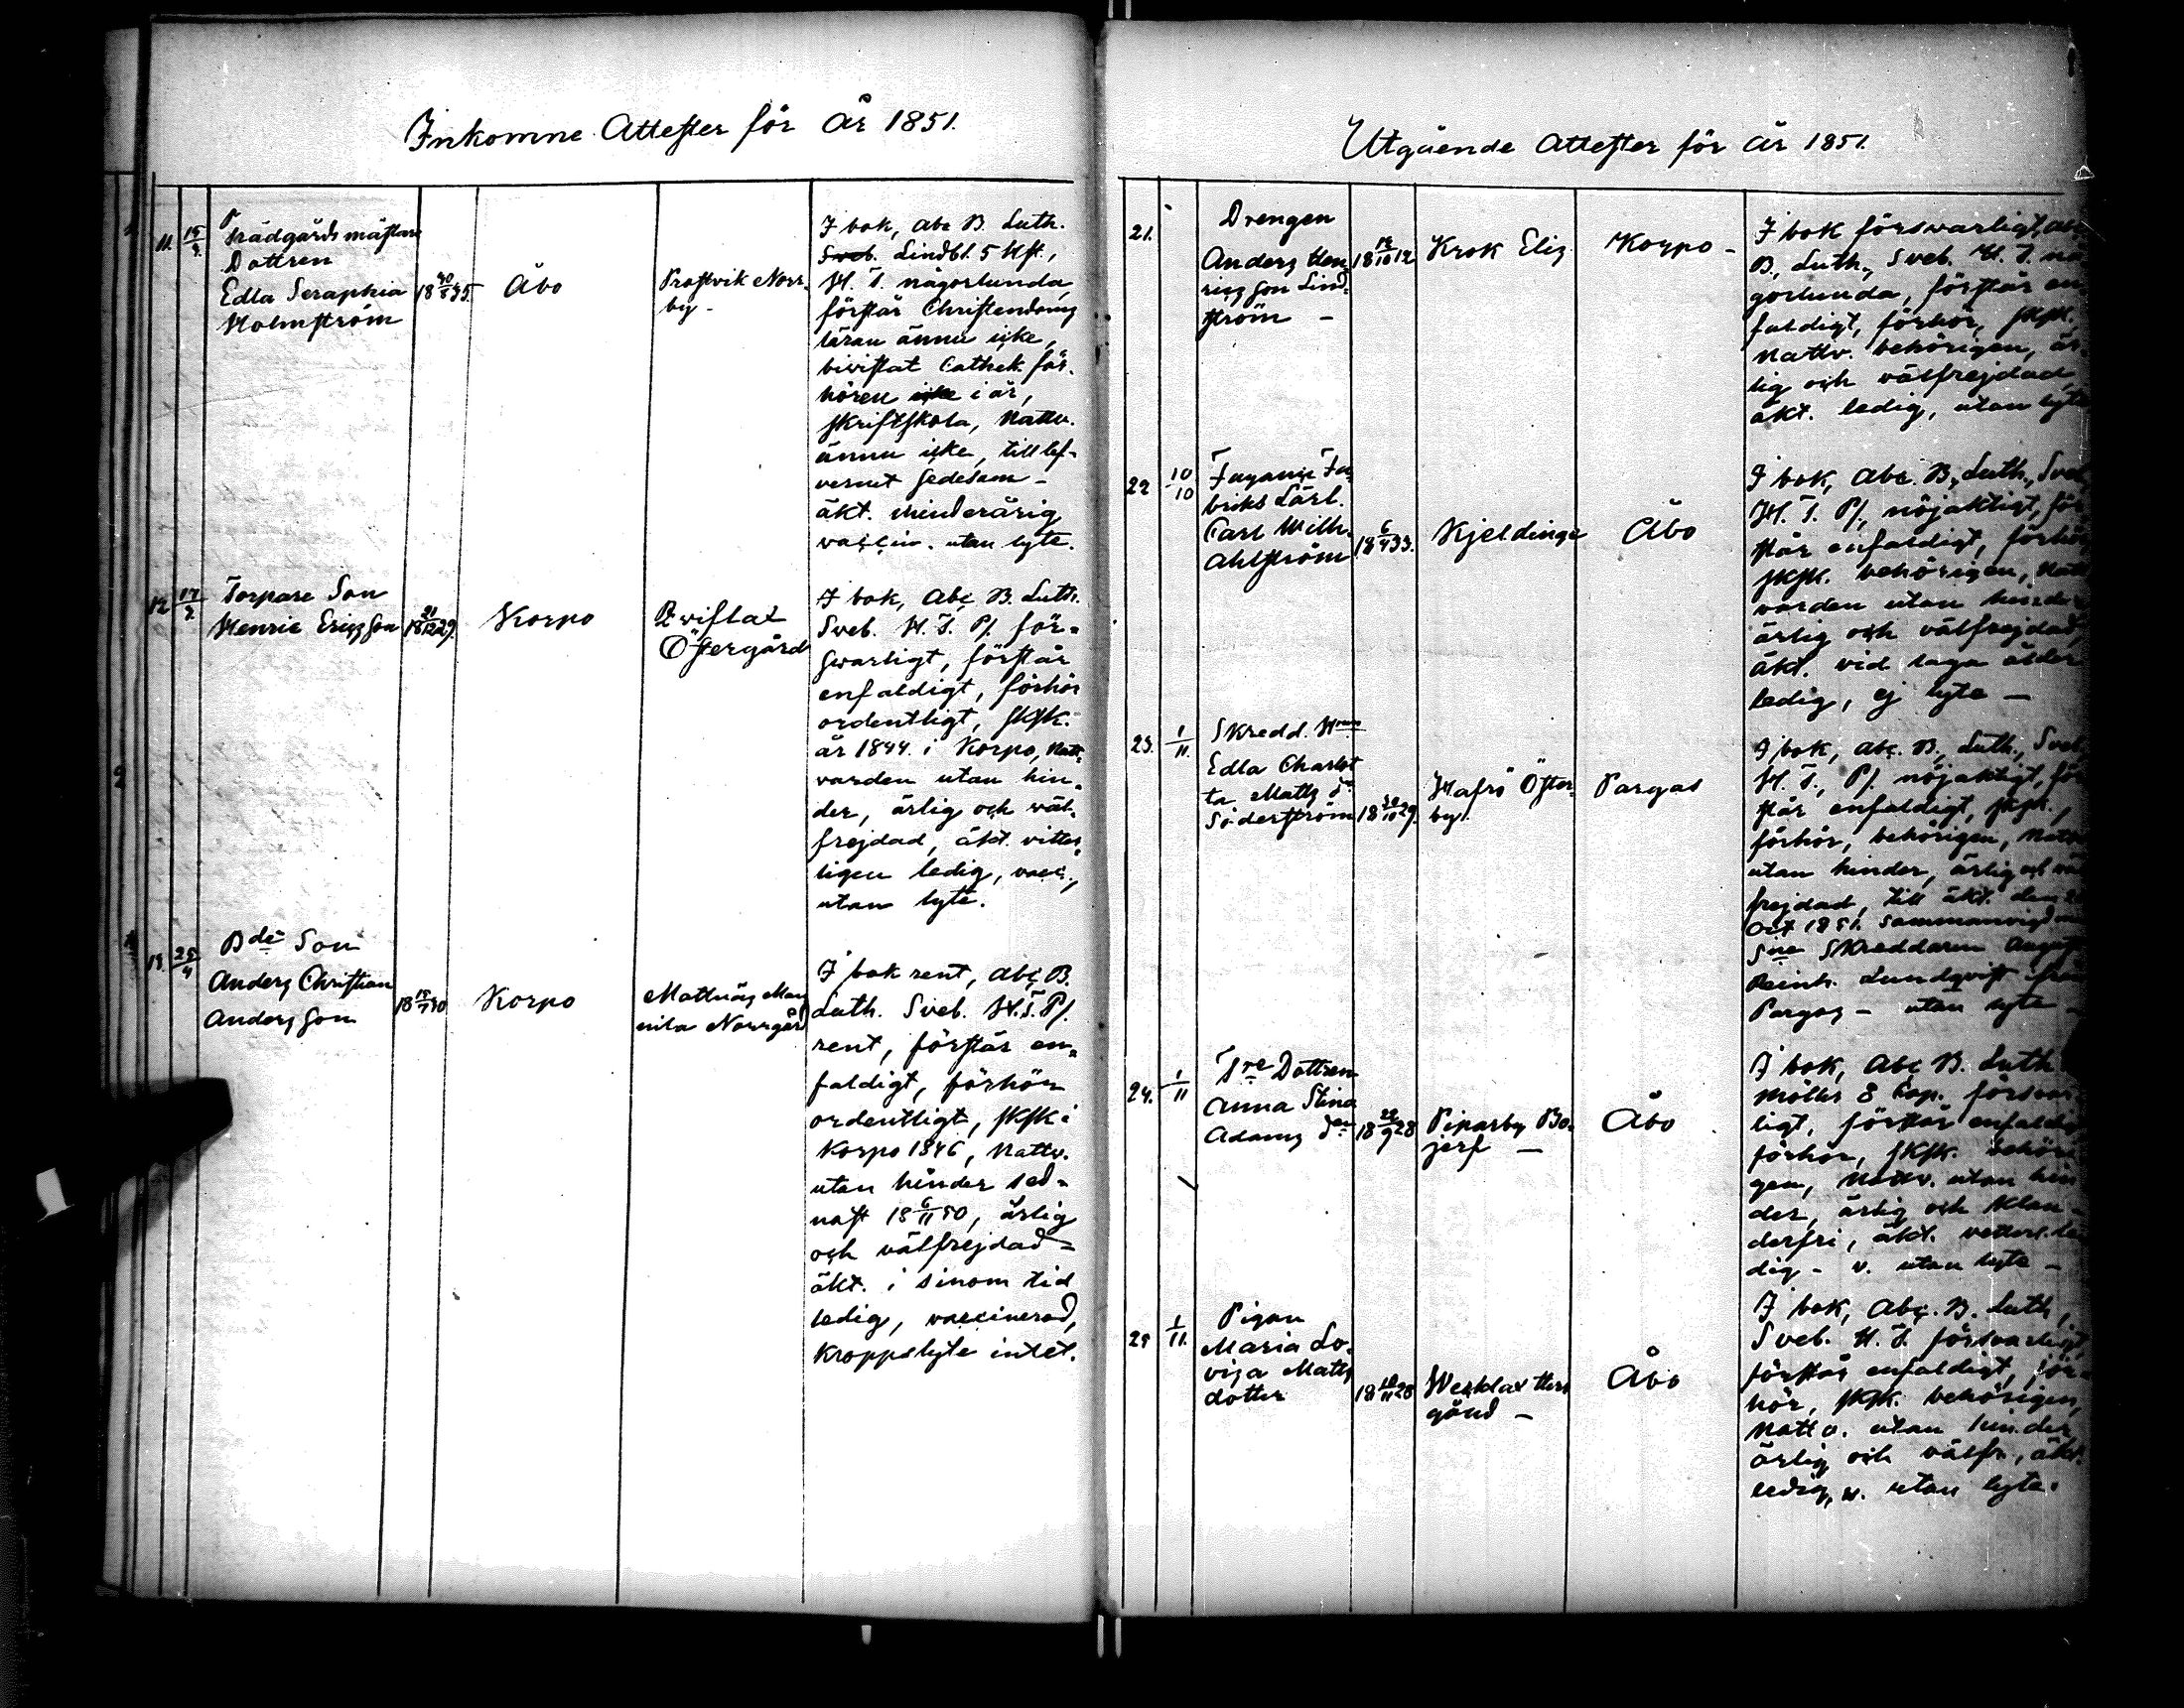 Inkomne Attester för År 1851.
11. 15/2
Trädgårdsmästare
Dottren
Edla Seraphia
Holmström
18 30/8 35.
Åbo
Prostvik Norr-
by -
I bok, abc B. Luth.
Sveb. Lindbl. 5 Hst.,
H. T. någorlunda,
förstår Christendoms
läran ännu icke,
bivistat Cathek. för-
hören icke i år,
skriftskola, Nattv.
ännu icke, till lef-
vernet sedesam -
äkt. minderårig
vaccin. utan lyte.
12 17/2
Torpare Son
Henric Ericsson
18 21/12 29.
Korpo
Qvistal
Östergård
I bok, Abc B. Luth.
Sveb. H. T. Ps. för-
svarligt, förstår
enfaldigt, förhör
ordentligt, skfsk.
år 1844. i Korpo, Natt-
varden utan hin-
der, ärlig och väl-
frejdad, äkt. vitter-
ligen ledig, vacc.,
utan lyte.
13. 25/4
Bde Son
Anders Christian
Andersson
18 15/7 30
Korpo
Mattnäs Man
nila Norrgård
I bok rent, abc B.
Luth. Sveb. H.T. Ps.
rent, förstår en-
faldigt, förhör
ordentligt, skfsk i
Korpo 1846, Nattv.
utan hinder sed-
nast 18 6/11 50, ärlig
och välfrejdad -
äkt. i sinom tid
ledig, vaccinerad,
kroppslyte intet.
Utgående Attester för År 1851.
21.
Drengen
Anders Hen-
ricsson Lind-
ström -
Krok Elis
Korpo -
I bok försvarligt, abc
B, Luth., Sveb. H. T. nå
gorlunda, förstår en
faldigt, förhör, skfsk.,
Nattv. behörigen, är-
lig och välfrejdad
äkt. ledig, utan lyte
22 10/10
Fayance Fa
briks Lärl.
Carl Wilh.
Ahlström
18 6/4 33.
Kjeldinge
Åbo
I bok, Abc. B., Luth., Sveb
H. T. Ps., nöjaktigt, för
står enfaldigt, förhör
skfsk. behörigen, Natt
varden utan hinder
ärlig och välfrejdad,
äkt. vid laga ålder
ledig, ej lyte -
23. 1/11.
Skredd. Hrun
Edla Charlot
ta Matts dr
Söderström
18 30/10 29.
Hafrö Öster-
by.
Pargas
I bok, abc. B., Luth., Sveb.
H. T., Ps. nöjaktigt, för
står enfaldigt, skfsk.,
förhör, behörigen, Nattv
utan hinder, ärlig och väl
frejdad, till äkt. den
Oct 1851. sammanvigd
Skreddaren August
Reinh. Lundqvist från
Pargas - utan lyte -
24. 1/11
Tre Dottren
Anna Stina
Adams dr
18 22/9 28
Piparby Bo-
jerf -
Åbo
I bok, Abc B. Luth
Möller 8 Cap. försvar
ligt, förstår enfaldigt
förhör, skfsk. behöri
gen, Nattv. utan hin
der, ärlig och klan-
derfri, äkt. vetterl. le
dig - v. utan lyte -
25 1/11.
Pigan
Maria Lo-
visa Matts
dotter
18 10/11 28
Wesklax Herr
gård -
Åbo
I bok, Abc. B. Luth,
Sveb. H. T. försvarligt,
förstår enfaldigt, för-
hör, skfsk. behörigen,
Nattv. utan hinder
ärlig och välfr., äkt.
ledig, v. utan lyte.